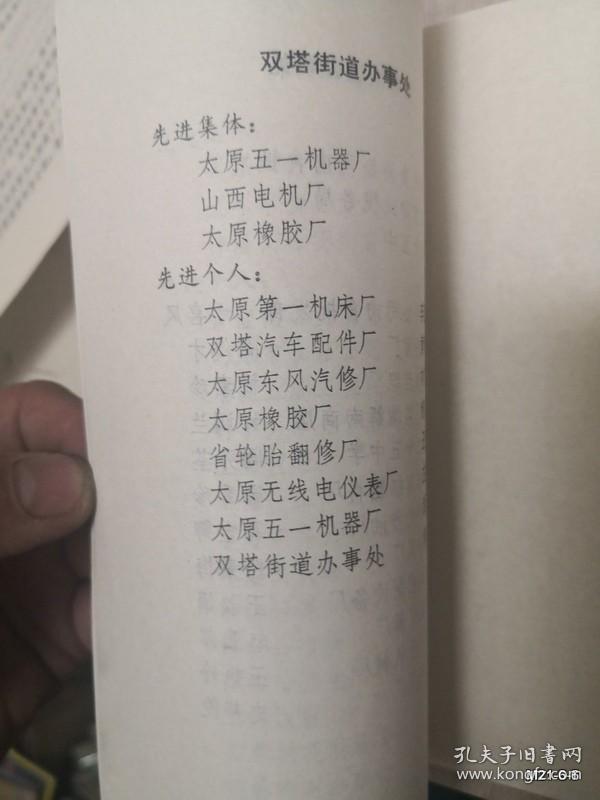 双塔街道办事处
先进集体：
太原五一机器厂
山西电机厂
太原橡胶厂
先进个人：
太原第一机床厂
双塔汽车配件厂
太原东风汽修厂
太原橡胶厂
省轮胎翻修厂
太原无线电仪表厂
太原五一机器厂
双塔街道办事处
孔夫子旧书网